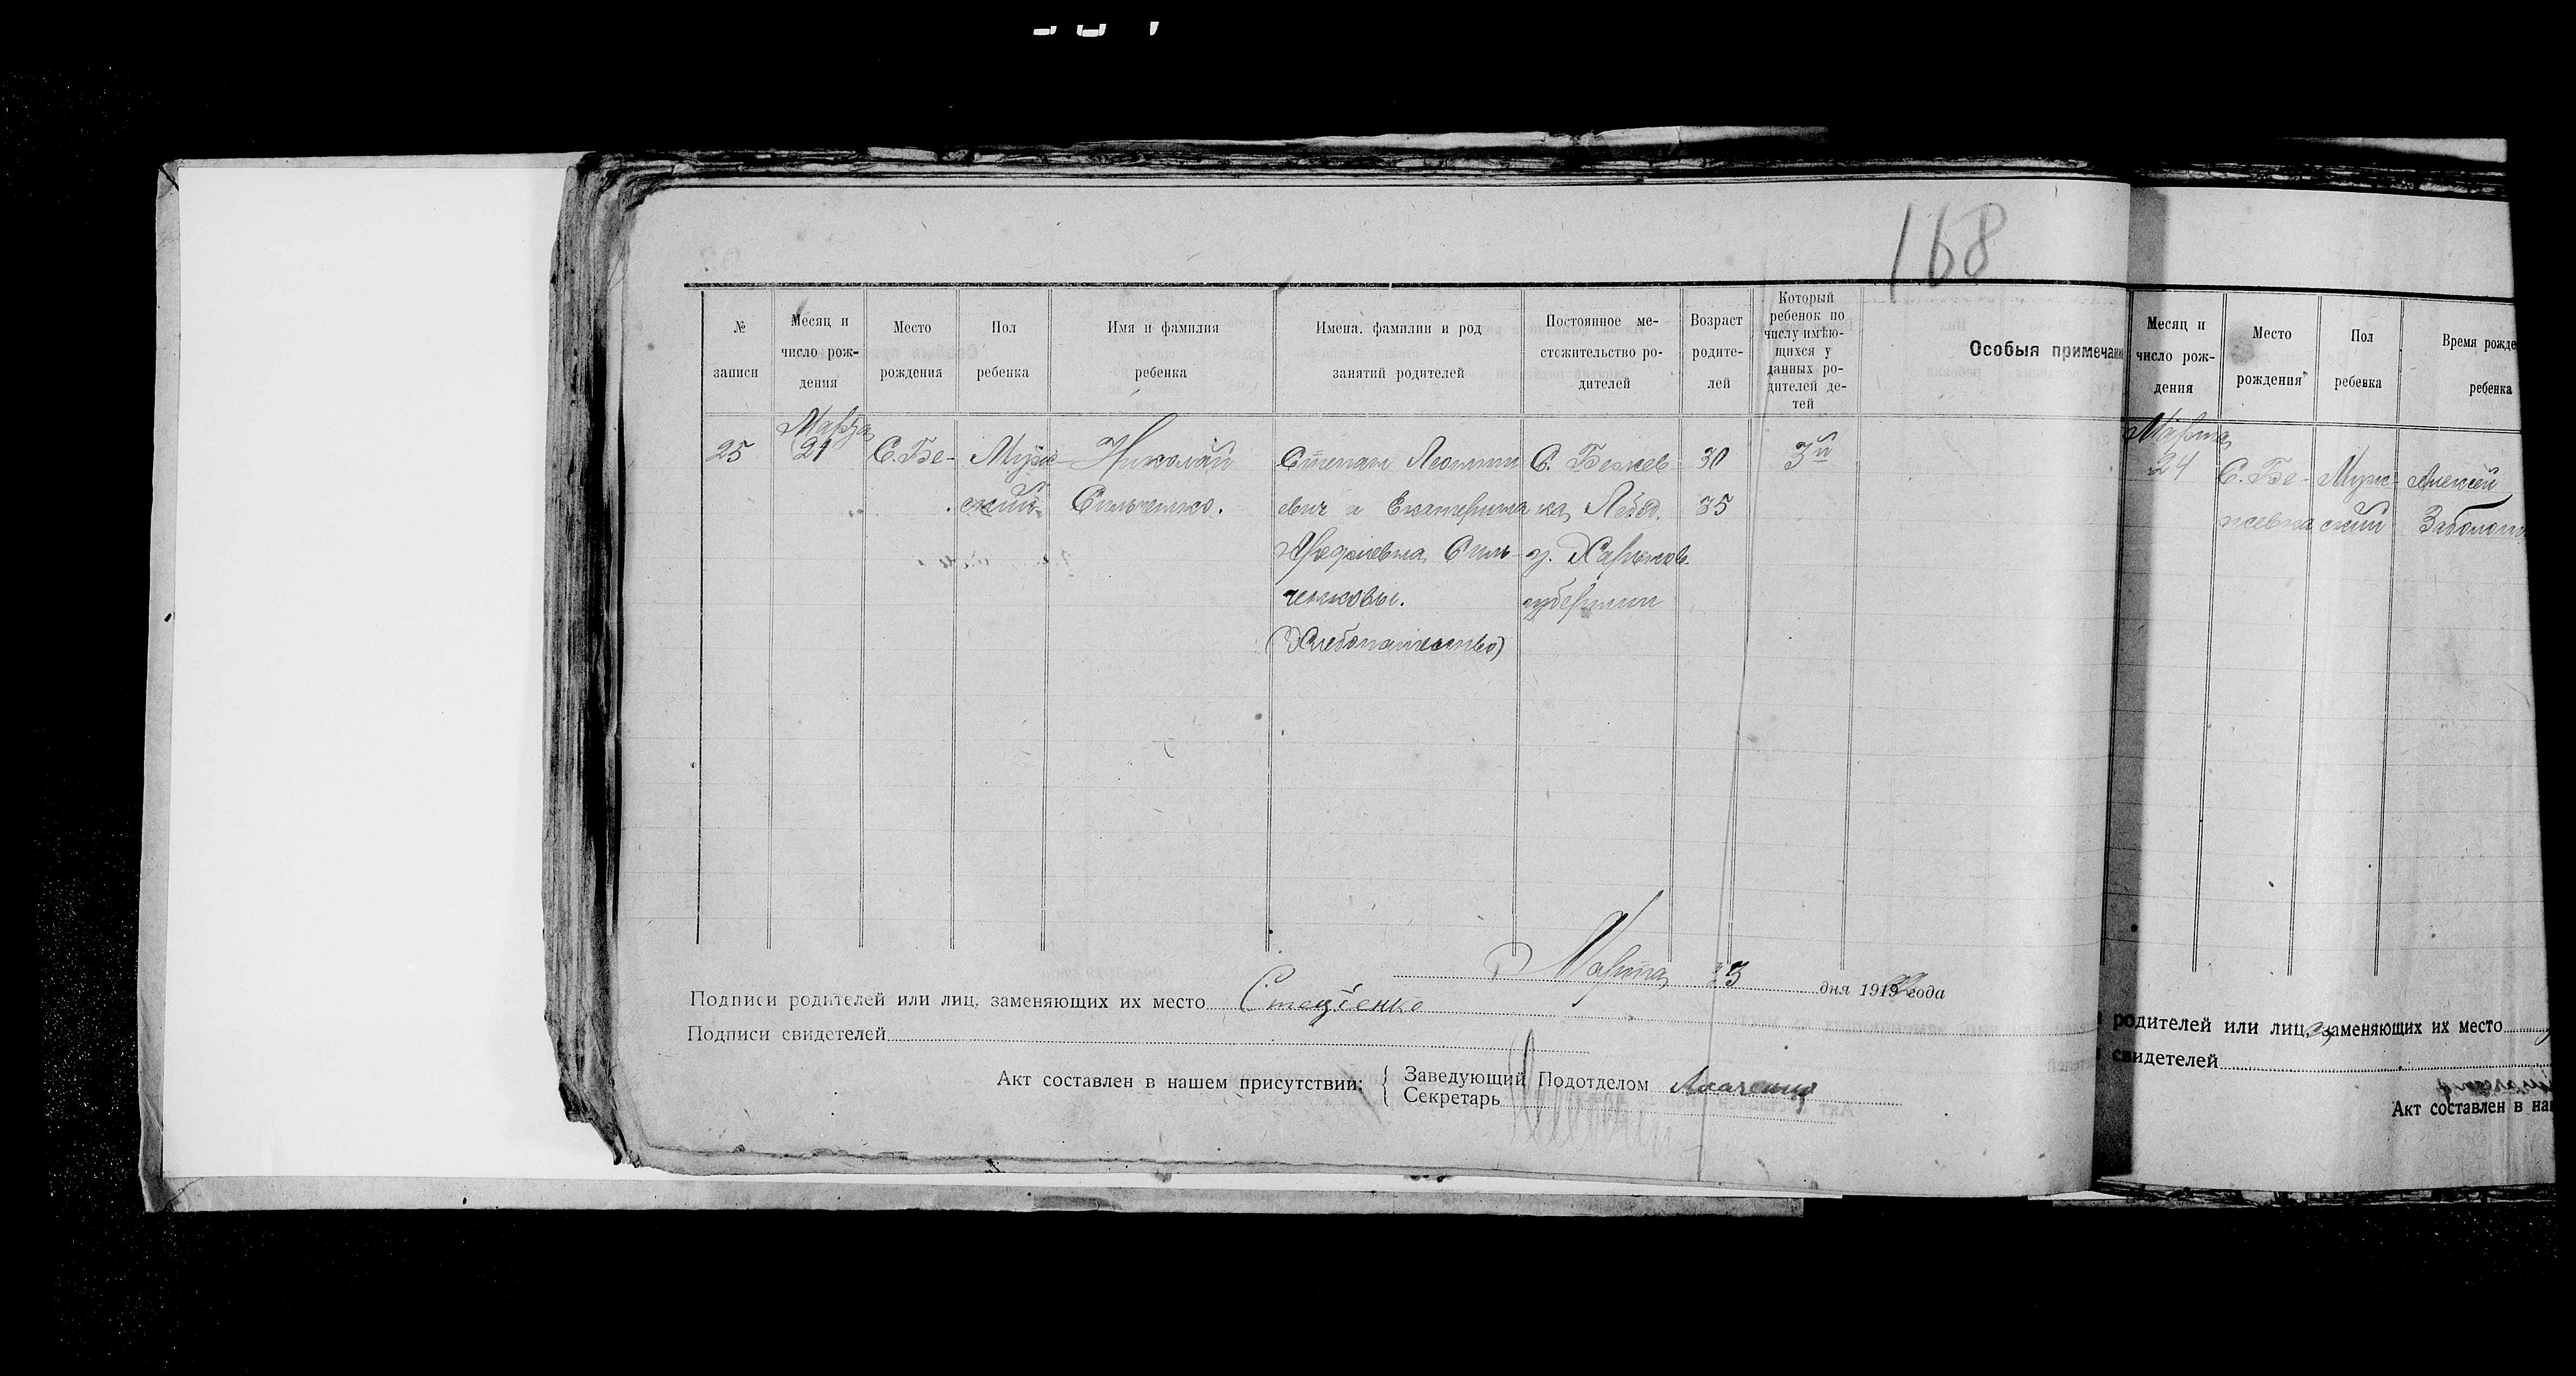 168
№ записи
Месяц и число рождения
Место рождения
Пол ребенка
Имя и фамилия ребенка
Имена, фамилии и род занятий родителей
Постоянное местожительство родителей
Возраст родителей
Который ребенок по числу имѣющихся у данных родителей детей
Особыя примечани
25
Марта
21
С. Бе-
Муж-
ский
Николай
Сильченко.
Степан Леонтии
евич и Екатерина
Сил-
ченковы.
(Хлебопашество)
С. Бежев
ка, Лебед.
у. Харьков.
губернии
30
35
3й
Марта 23 дня 1919 года
Подписи родителей или лиц, заменяющих их место Стеценко
Подписи свидетелей
Акт составлен в нашем присутствии:
Заведующий Подотделом
Секретарь
Месяц и число рождения
Место рождения
Пол ребенка
Время рожде
ребенка
Марта
24
С. Бе-
жевка
Муж-
ский
Алексей
родителей или лиц, заменяющих их место
свидетелей
Акт составлен в на